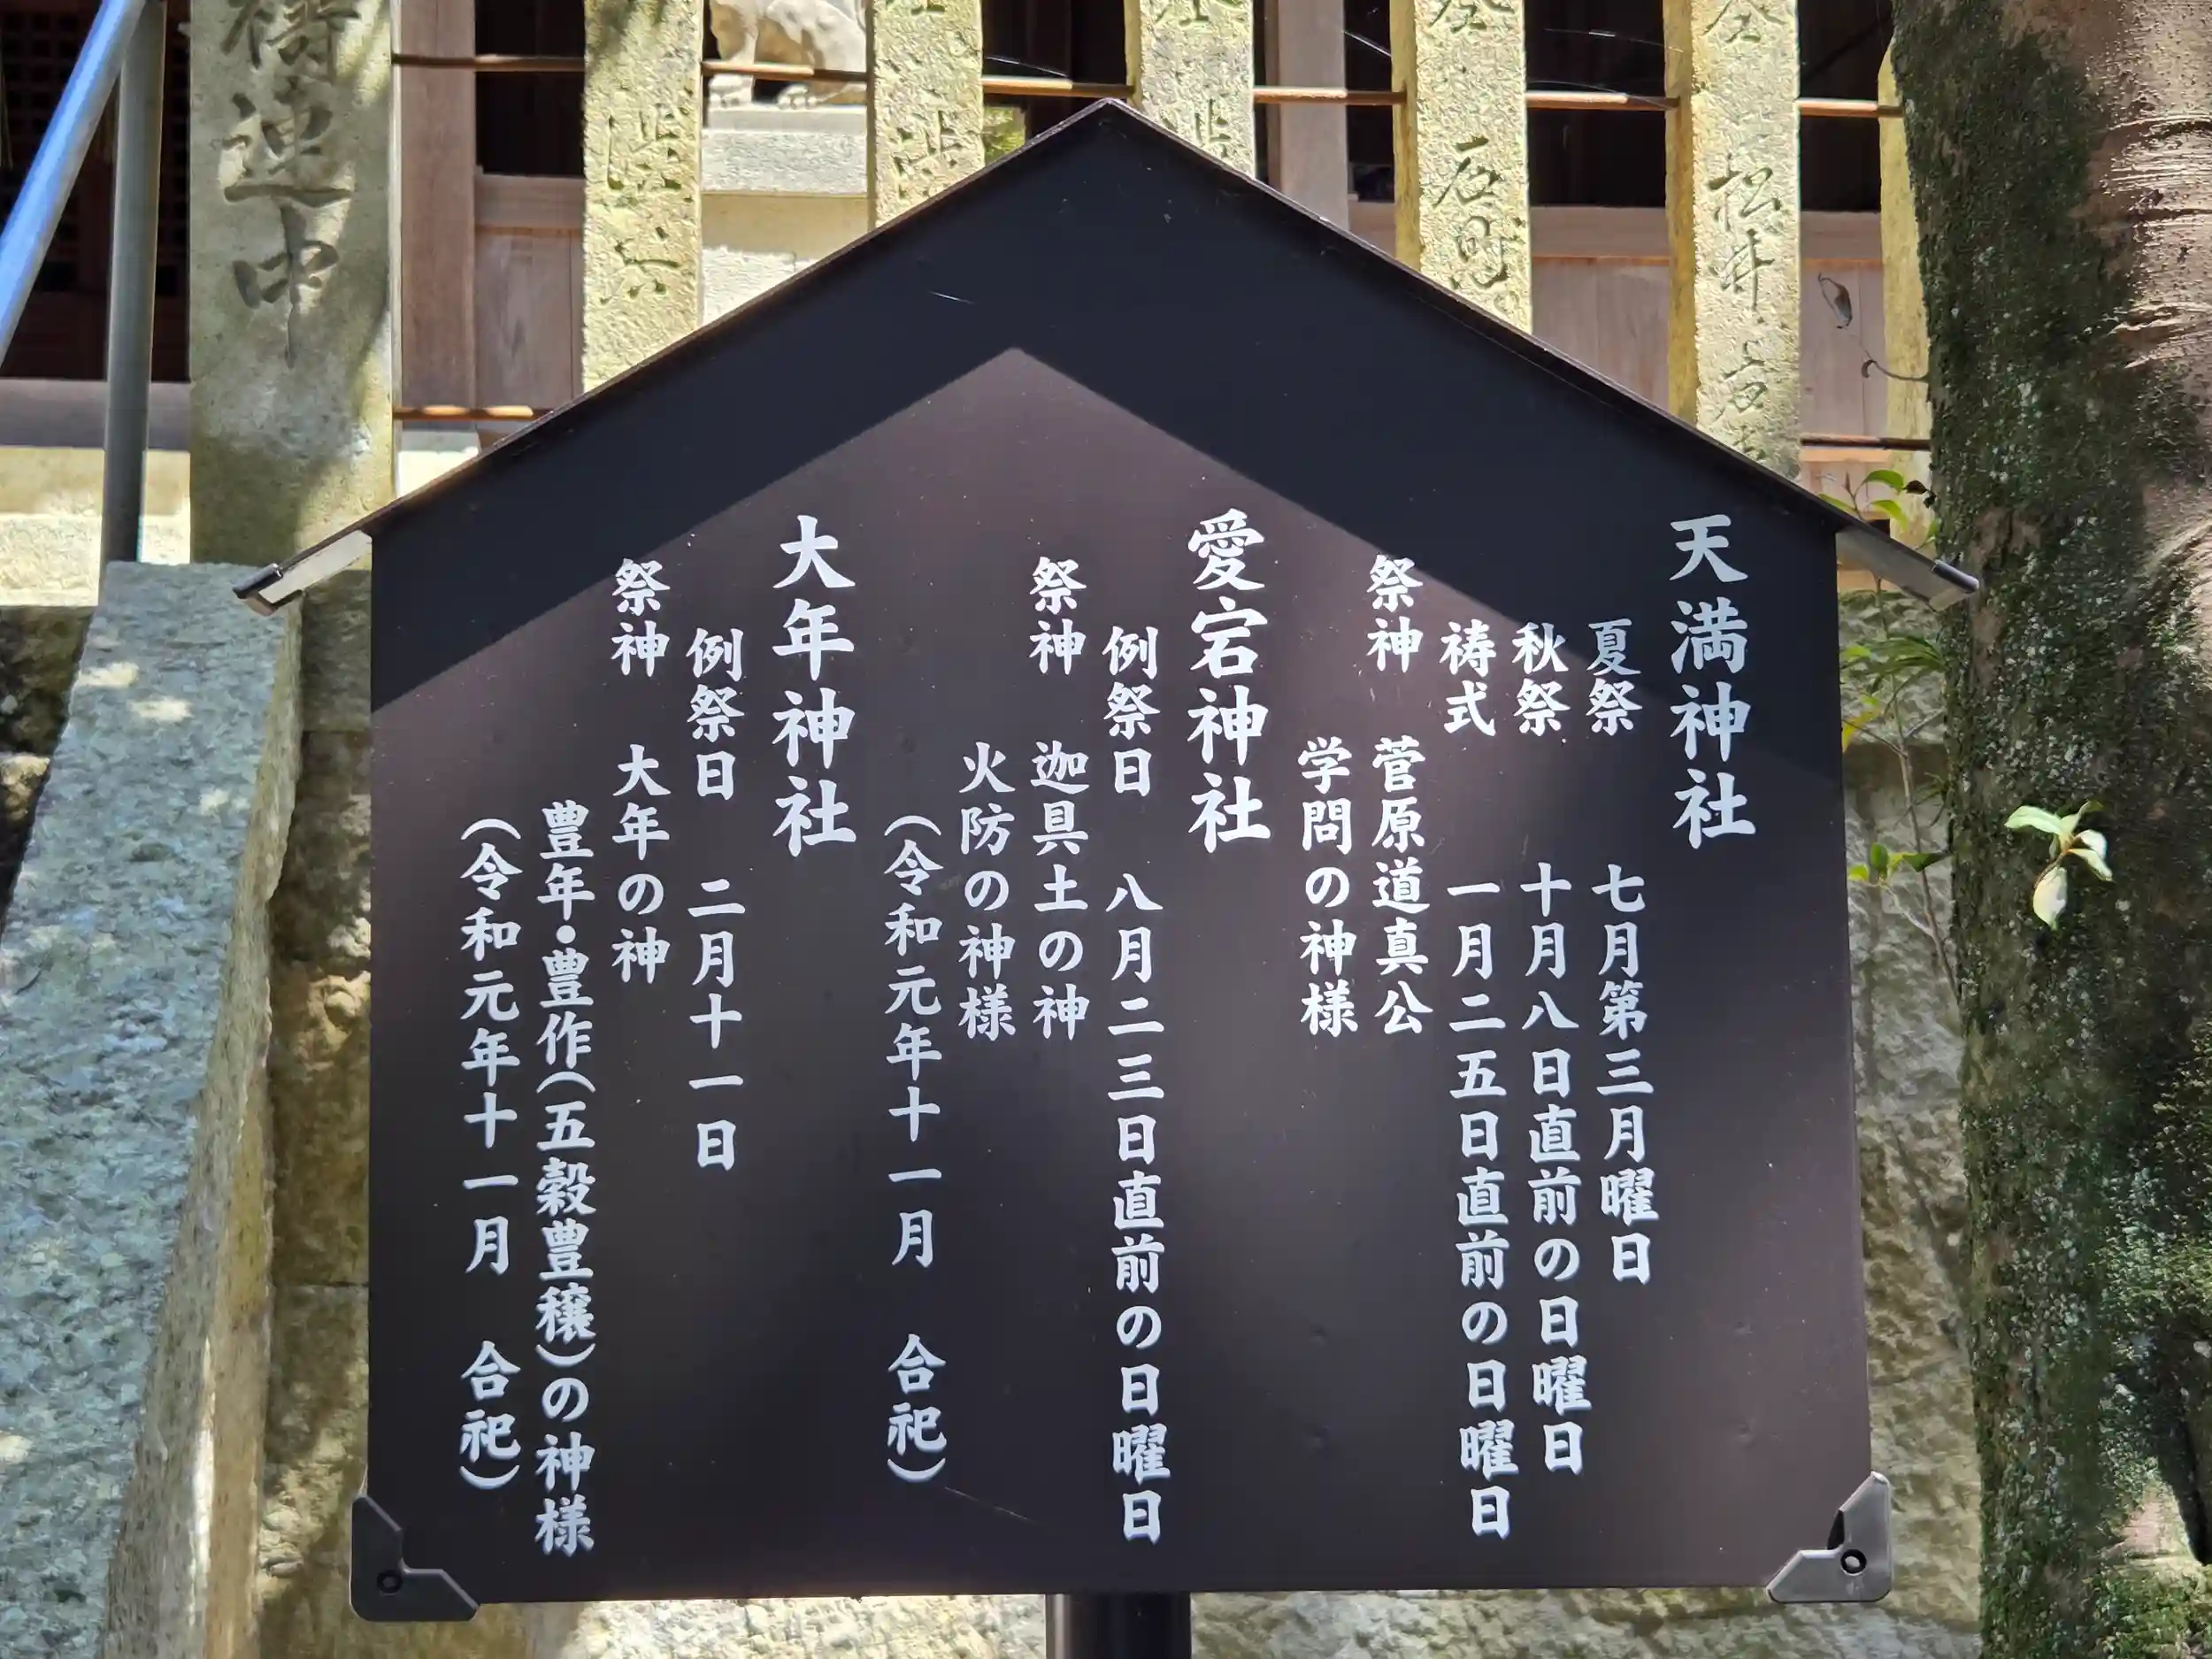 天満神社
夏祭　七月第三月曜日
秋祭　十月八日直前の日曜日
祷式　一月二五日直前の日曜日
祭神　菅原道真公
学問の神様
愛宕神社
例祭日　八月二三日直前の日曜日
祭神　迦具土の神
火防の神様
（令和元年十一月　合祀）
大年神社
例祭日　二月十一日
祭神　大年の神
豊年・豊作（五穀豊穣）の神様
（令和元年十一月　合祀）
松井
連中